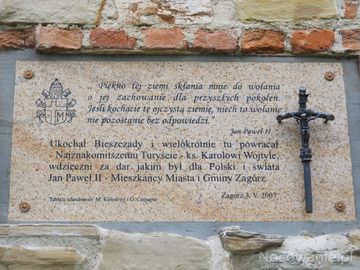 Piękno tej ziemi skłania mnie do wołania
o jej zachowanie dla przyszłych pokoleń.
Jeśli kochacie tę ojczystą ziemię, niech to wołanie
nie pozostanie bez odpowiedzi.
Jan Paweł II
Ukochał Bieszczady i wielokrotnie tu powracał
Najznakomitszemu Turyście - ks. Karolowi Wojtyle,
wdzięczni za dar jakim był dla Polski i świata
Jan Paweł II - Mieszkańcy Miasta i Gminy Zagórz
Zagórz 3. V. 2007
Tablicę ufundowali M. Kołodziej i G.
Nocowanie.pl